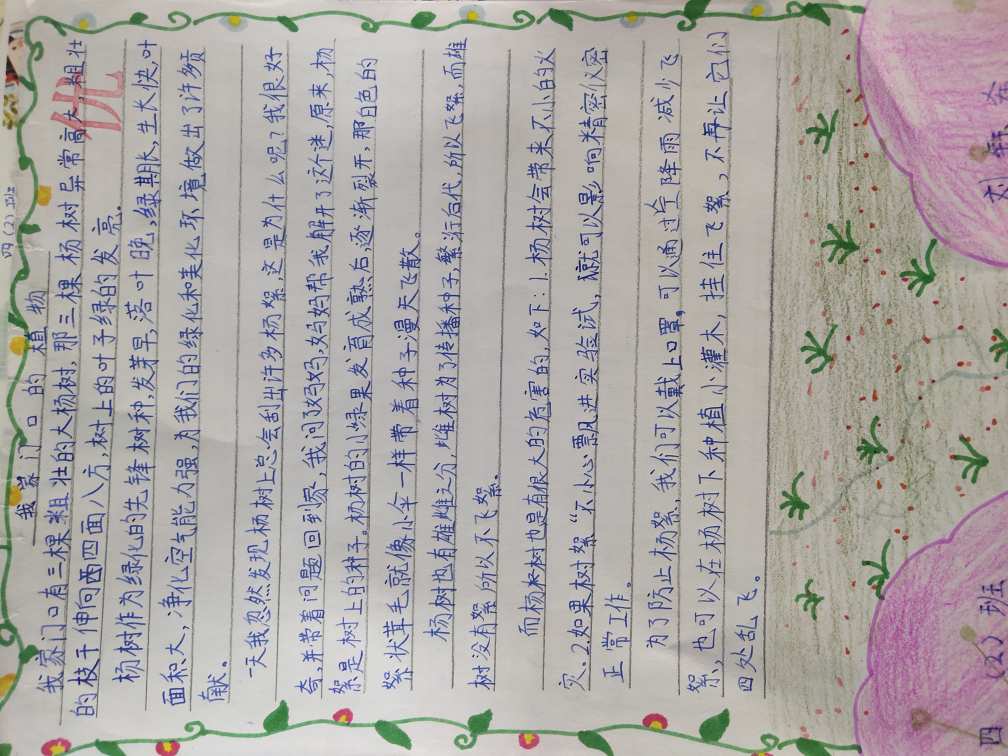 四(2)班
我家门口的植物
优
我家门口有三棵粗壮的大杨树,那三棵杨树异常高大,粗壮
的枝干伸向西四面八方,树上的叶子绿的发亮。
杨树作为绿化的先锋树种,发芽早,落叶晚,绿期长,生长快,叶
面积大,净化空气能力强,为我们的绿化和美化环境做出了许多贡
献。
一天我忽然发现杨树上总会刮出许多杨絮,这是为什么呢?我很好
奇,并带着问题回到家,我问了妈妈,妈妈帮我解开了这个迷,原来,杨
絮是树上的种子。杨树的小绿果发育成熟后,逐渐裂开,那白色的
絮状茸毛就像小伞一样带着种子漫天飞散。
杨树也有雄雌之分,雌树为了传播种子,繁衍后代,所以飞絮,而雄
树没有絮所以不飞絮。
而杨树也是有很大的危害的,如下:1.杨树会带来不小的火
灾.2.如果树絮“不小心飘进实验试,就可以影响精密仪密
正常工作。
为了防止杨絮,我们可以戴上口罩,可以通过降雨减少飞
絮,也可以在杨树下种植小灌木,挂住飞絮,不再让它们
四处乱飞。
四(2)班
刘